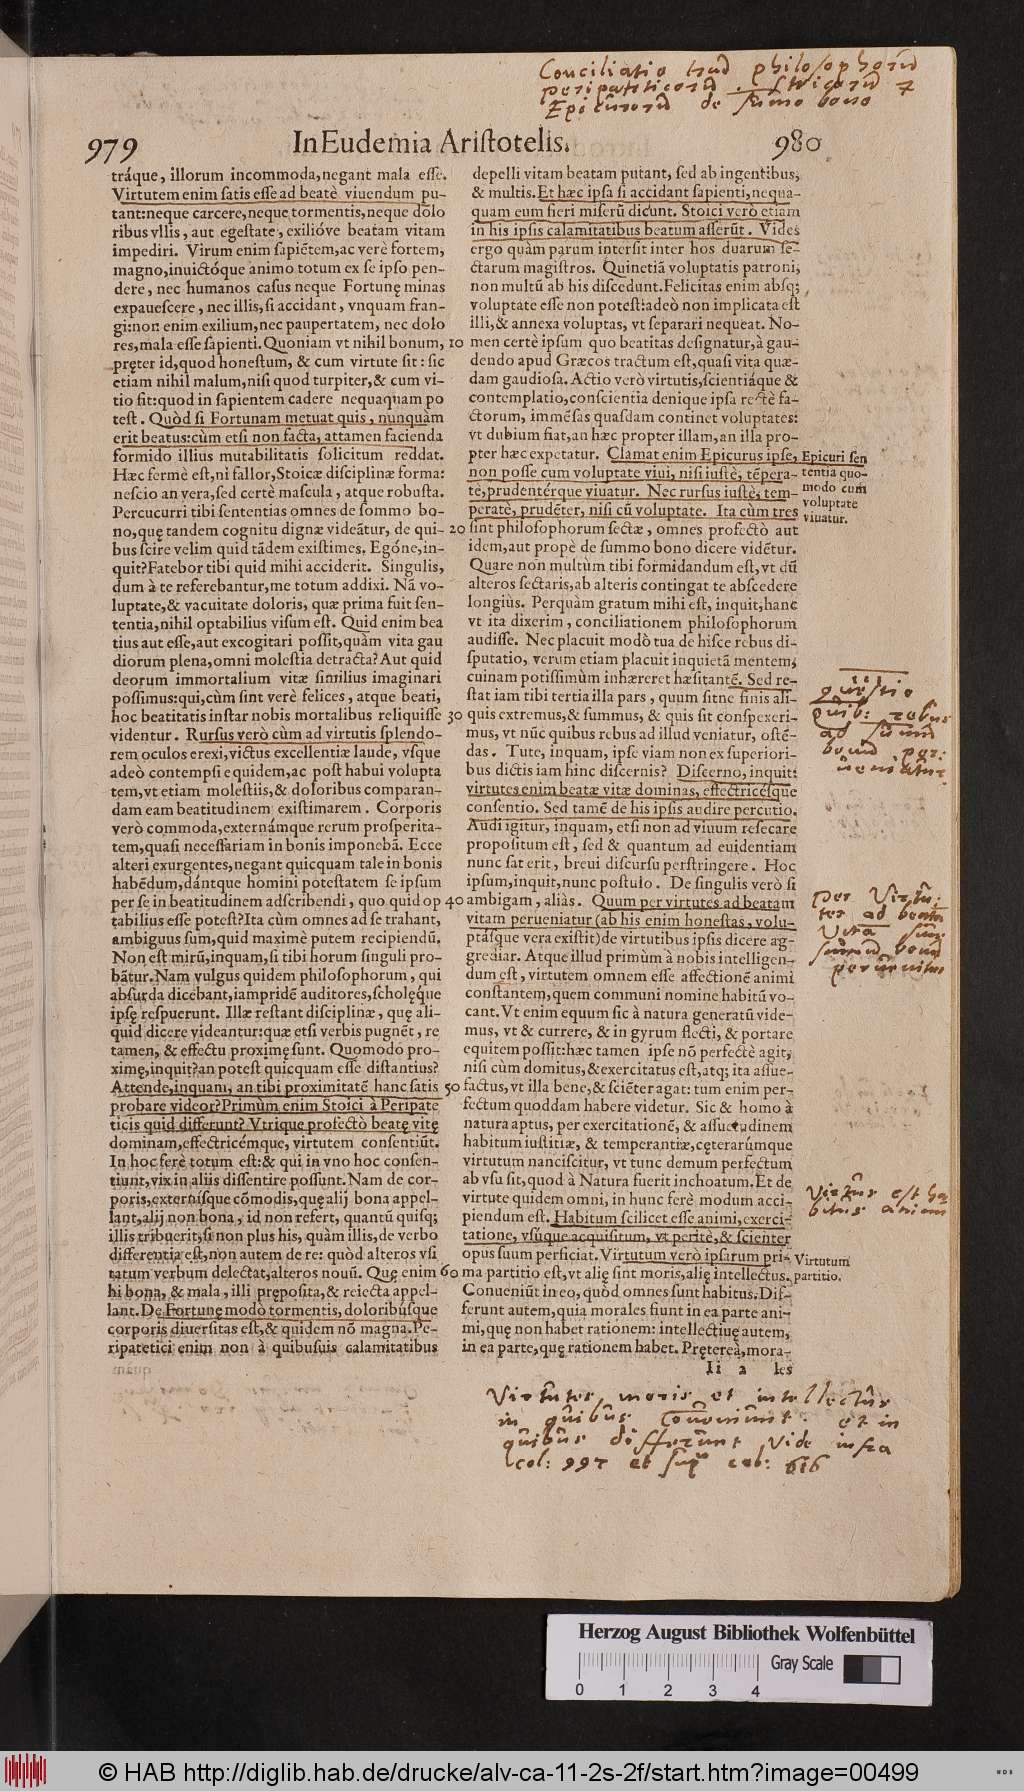 Conciliatio triũ philosophorũ
peripateticorũ, stoicorũ &
Epicurorũ de sũmo bono
979 In Eudemia Aristotelis. 980
tráque, illorum incommoda, negant mala esse.
Virtutem enim satis esse ad beatè viuendum pu-
tant: neque carcere, neque tormentis, neque dolo
ribus vllis, aut egestate, exilióve beatam vitam
impediri. Virum enim sapiẽtem, ac verè fortem,
magno, inuictóque animo totum ex se ipso pen-
dere, nec humanos casus neque Fortunę minas
expauescere, nec illis, si accidant, vnquam fran-
gi: non enim exilium, nec paupertatem, nec dolo
res, mala esse sapienti. Quoniam vt nihil bonum, 10
pręter id, quod honestum, & cum virtute sit: sic
etiam nihil malum, nisi quod turpiter, & cum vi-
tio sit: quod in sapientem cadere nequaquam po
test. Quòd si Fortunam metuat quis, nunquàm
erit beatus: cùm etsi non facta, attamen facienda
formido illius mutabilitatis solicitum reddat.
Hæc fermè est, ni fallor, Stoicæ disciplinæ forma:
nescio an vera, sed certè mascula, atque robusta.
Percucurri tibi sententias omnes de sommo bo-
no, quę tandem cognitu dignæ videãtur, de qui- 20
bus scire velim quid tãdem existimes. Egóne, in-
quit? Fatebor tibi quid mihi acciderit. Singulis,
dum à te referebantur, me totum addixi. Nã vo-
luptate, & vacuitate doloris, quæ prima fuit sen-
tentia, nihil optabilius visum est. Quid enim bea
tius aut esse, aut excogitari possit, quàm vita gau
diorum plena, omni molestia detracta? Aut quid
deorum immortalium vitæ similius imaginari
possimus: qui, cùm sint verè felices, atque beati,
hoc beatitatis instar nobis mortalibus reliquisse 30
videntur. Rursus verò cùm ad virtutis splendo-
rem oculos erexi, victus excellentiæ laude, vsque
adeò contempsi equidem, ac post habui volupta
tem, vt etiam molestiis, & doloribus comparan-
dam eam beatitudinem existimarem. Corporis
verò commoda, externámque rerum prosperita-
tem, quasi necessariam in bonis imponebã. Ecce
alteri exurgentes, negant quicquam tale in bonis
habẽdum, dántque homini potestatem se ipsum
per se in beatitudinem adscribendi, quo quid op 40
tabilius esse potest? Ita cùm omnes ad se trahant,
ambiguus sum, quid maximè putem recipiendũ.
Non est mirũ, inquam, si tibi horum singuli pro-
bãtur. Nam vulgus quidem philosophorum, qui
absurda dicebant, iampridẽ auditores, scholęque
ipsę respuerunt. Illæ restant disciplinæ, quę ali-
quid dicere videantur: quæ etsi verbis pugnẽt, re
tamen, & effectu proximę sunt. Quomodo pro-
ximę, inquit? an potest quicquam esse distantius?
Attende, inquam, an tibi proximitatẽ hanc satis 50
probare videor? Primùm enim Stoici à Peripate
ticis quid differunt? Vtrique profectò beatę vitę
dominam, effectricémque, virtutem consentiũt.
In hoc ferè totum est: & qui in vno hoc consen-
tiunt, vix in aliis dissentire possunt. Nam de cor-
poris, externísque cõmodis, quę alij bona appel-
lant, alij non bona, id non refert, quantũ quisq;
illis tribuerit, si non plus his, quàm illis, de verbo
differentia est, non autem de re: quòd alteros vsi
tatum verbum delectat, alteros nouũ. Quę enim 60
hi bona, & mala, illi pręposita, & reiecta appel-
lant. De Fortunę modò tormentis, doloribúsque
corporis diuersitas est, & quidem nõ magna. Pe-
ripatetici enim non à quibusuis calamitatibus
depelli vitam beatam putant, sed ab ingentibus,
& multis. Et hæc ipsa si accidant sapienti, nequa-
quam eum fieri miserũ dicunt. Stoici verò etiam
in his ipsis calamitatibus beatum asserũt. Vides
ergo quàm parum intersit inter hos duarum se-
ctarum magistros. Quinetiã voluptatis patroni,
non multũ ab his discedunt. Felicitas enim absq;
voluptate esse non potest: adeò non implicata est
illi, & annexa voluptas, vt separari nequeat. No-
men certè ipsum quo beatitas designatur, à gau-
dendo apud Græcos tractum est, quasi vita quæ-
dam gaudiosa. Actio verò virtutis, scientiáque &
contemplatio, conscientia denique ipsa rectè fa-
ctorum, immẽsas quasdam continet voluptates:
vt dubium fiat, an hæc propter illam, an illa pro-
pter hæc expetatur. Clamat enim Epicurus ipse,
non posse cum voluptate viui, nisi iustè, tẽpera-
tè, prudentérque viuatur. Nec rursus iustè, tem-
peratè, prudẽter, nisi cũ voluptate. Ita cùm tres
sint philosophorum sectæ, omnes profectò aut
idem, aut propè de summo bono dicere vidẽtur.
Quare non multùm tibi formidandum est, vt dũ
alteros sectaris, ab alteris contingat te abscedere
longiùs. Perquàm gratum mihi est, inquit, hanc
vt ita dixerim, conciliationem philosophorum
audisse. Nec placuit modò tua de hisce rebus di-
sputatio, verum etiam placuit inquietã mentem,
cuinam potissimùm inhæreret hæsitantẽ. Sed re-
stat iam tibi tertia illa pars, quum sitne finis ali-
quis extremus, & summus, & quis sit conspexeri-
mus, vt nũc quibus rebus ad illud veniatur, ostẽ-
das. Tute, inquam, ipse viam non ex superiori-
bus dictis iam hinc discernis? Discerno, inquit:
virtutes enim beatæ vitæ dominas, effectricésque
consentio. Sed tamẽ de his ipsis audire percutio.
Audi igitur, inquam, etsi non ad viuum resecare
propositum est, sed & quantum ad euidentiam
nunc sat erit, breui discursu perstringere. Hoc
ipsum, inquit, nunc postulo. De singulis verò si
ambigam, aliàs. Quum per virtutes ad beatam
vitam perueniatur (ab his enim honestas, volu-
ptásque vera existit) de virtutibus ipsis dicere ag-
grediar. Atque illud primùm à nobis intelligen-
dum est, virtutem omnem esse affectionẽ animi
constantem, quem communi nomine habitũ vo-
cant. Vt enim equum sic à natura generatũ vide-
mus, vt & currere, & in gyrum flecti, & portare
equitem possit: hæc tamen ipse nõ perfectè agit,
nisi cùm domitus, & exercitatus est, atq; ita assue-
factus, vt illa bene, & sciẽter agat: tum enim per-
fectum quoddam habere videtur. Sic & homo à
natura aptus, per exercitationẽ, & assuetudinem
habitum iustitiæ, & temperantiæ, cęterarúmque
virtutum nanciscitur, vt tunc demum perfectum
ab vsu sit, quod à Natura fuerit inchoatum. Et de
virtute quidem omni, in hunc ferè modum acci-
piendum est. Habitum scilicet esse animi, exerci-
tatione, vsúque acquisitum, vt peritè, & scienter
opus suum perficiat. Virtutum verò ipsarum pri-
ma partitio est, vt alię sint moris, alię intellectus.
Conueniũt in eo, quòd omnes sunt habitus. Dif-
ferunt autem, quia morales fiunt in ea parte ani-
mi, quę non habet rationem: intellectiuę autem,
in ea parte, quę rationem habet. Pręterea, mora-
Ii 2 les
Epicuri sen
tentia quo-
modo cum
voluptate
viuatur.
quæstio
quib: rebus
ad sũmũ
bonũ per:
ueniatur
per Virtu:
tes ad beatã
Vitã
sũmũ bonũ
peruenitur
Virtus est ha
bitus animi
Virtutum
partitio.
Virtutes moris et intellectus
in quibus conueniunt. et in
quibus differunt Vide infra
col: 997 et supr col: 616
Herzog August Bibliothek Wolfenbüttel
Gray Scale
0 1 2 3 4
© HAB http://diglib.hab.de/drucke/alv-ca-11-2s-2f/start.htm?image=00499